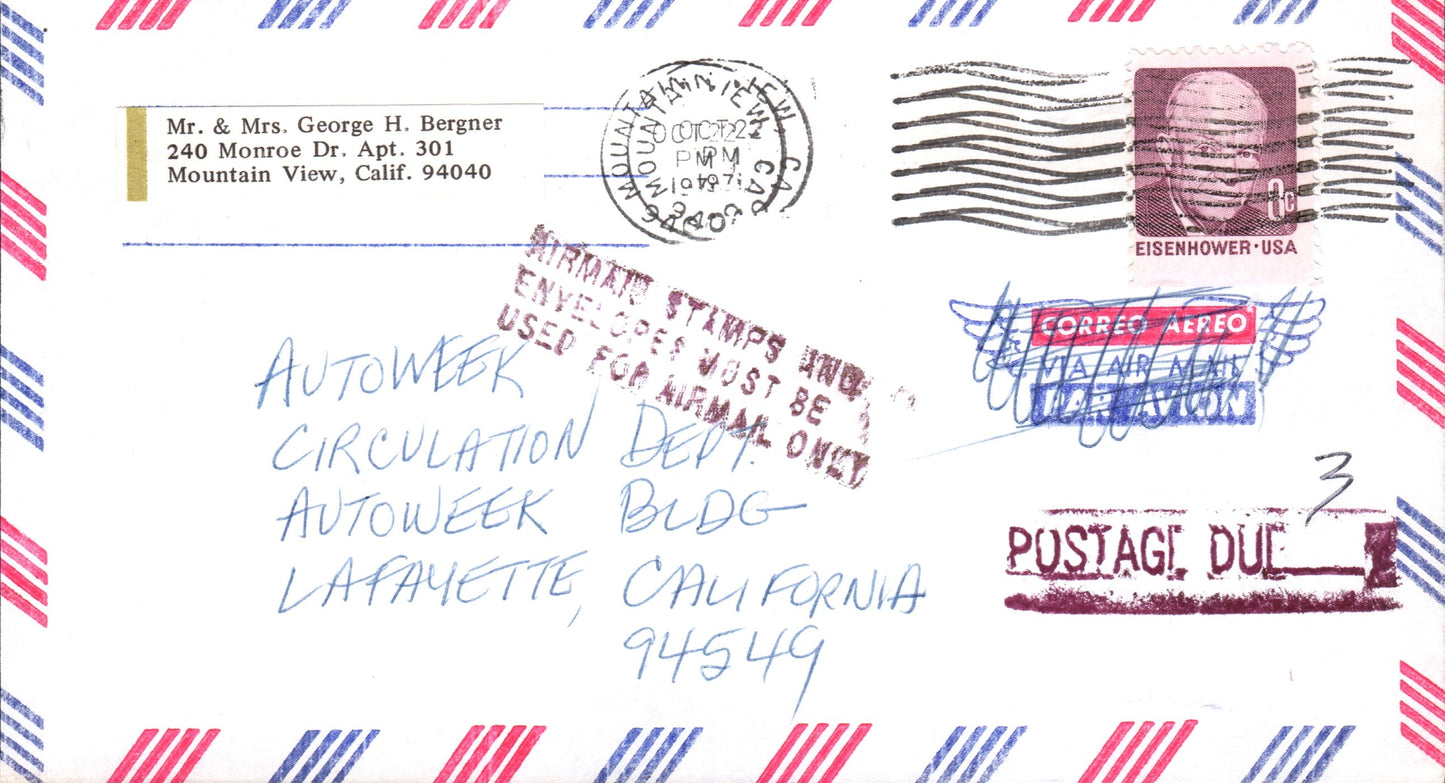 Mr. & Mrs. George H. Bergner
240 Monroe Dr. Apt. 301
Mountain View, Calif. 94040
MOUNTAIN VIEW, CA
OCT 22
PM
1971
EISENHOWER · USA
CORREO AEREO
VIA AIR MAIL
PAR AVION
AIRMAIL STAMPS AND
ENVELOPES MUST BE
USED FOR AIRMAIL ONLY
AUTOWEEK
CIRCULATION DEPT.
AUTOWEEK BLDG
LAFAYETTE, CALIFORNIA
94549
3
POSTAGE DUE